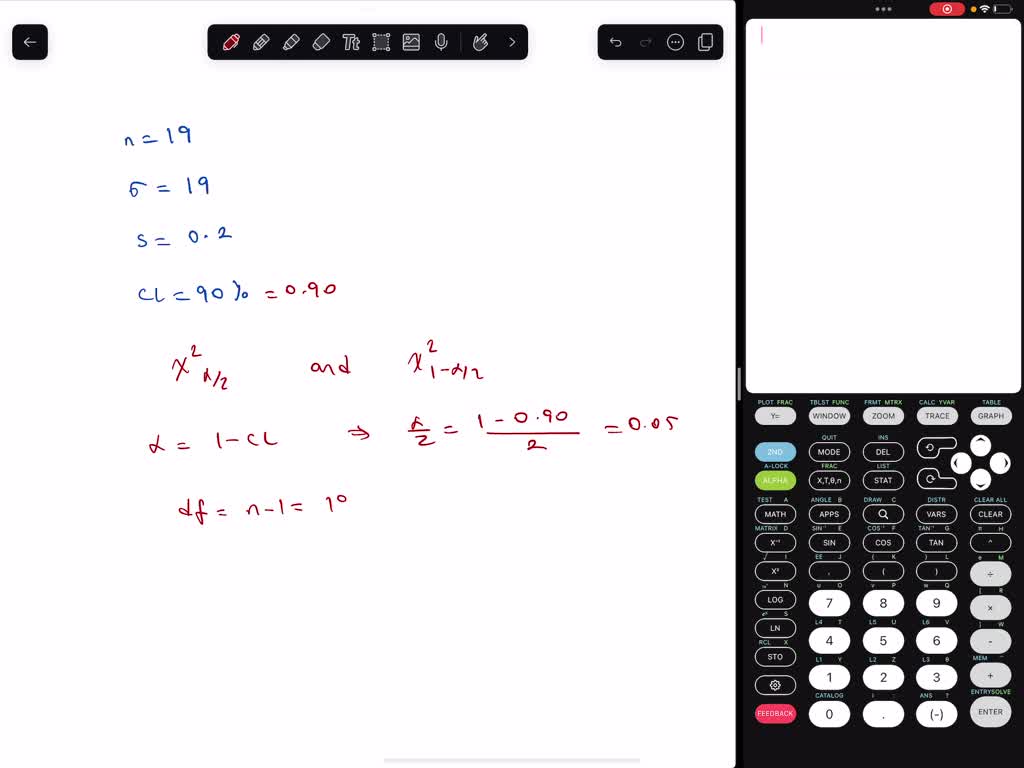 n = 19
σ = 19
s = 0.2
CL = 90% = 0.90
χ²α/2 and χ²1-α/2
α = 1 - CL ⇒ α/2 = (1 - 0.90)/2 = 0.05
df = n - 1 = 10
Tt
PLOT FRAC TBLST FUNC FRMT MTRX CALC YVAR TABLE
Y= WINDOW ZOOM TRACE GRAPH
QUIT INS
2ND MODE DEL
A-LOCK FRAC LIST
ALPHA X,T,θ,n STAT
TEST A ANGLE B DRAW C DISTR CLEAR ALL
MATH APPS VARS CLEAR
MATRIX D SIN⁻¹ E COS⁻¹ F TAN⁻¹ G π H
X⁻¹ SIN COS TAN ^
√ I EE J { K } L e M
X² , ( ) ÷
N u O v P w Q [ R
LOG 7 8 9 ×
eˣ S L4 T L5 U L6 V ] W
LN 4 5 6 -
RCL X L1 Y L2 Z L3 θ MEM
STO 1 2 3 +
CATALOG i : ANS ? ENTRYSOLVE
FEEDBACK 0 . (-) ENTER